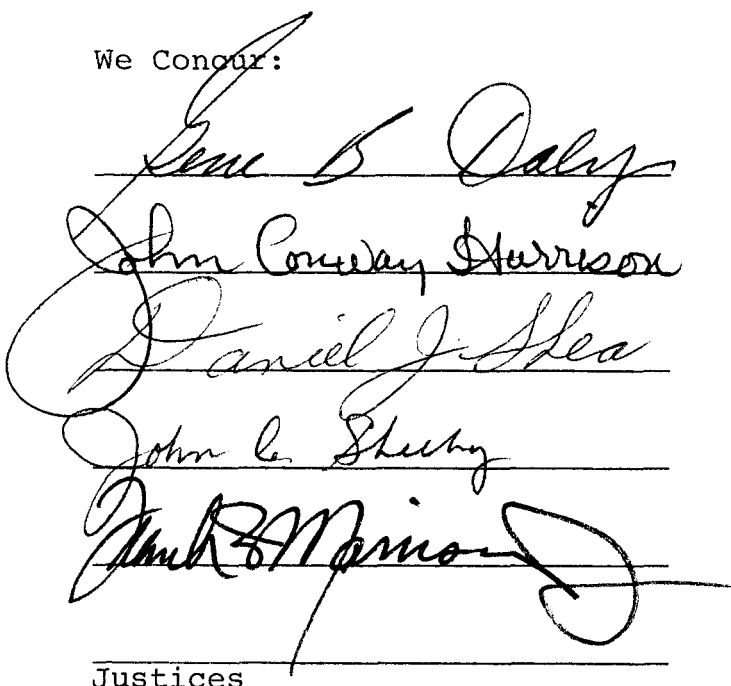 We Concur:
Gene B Daly
John Conway Harrison
Daniel J. Shea
John C. Sheehy
Frank B Morrison Jr
Justices